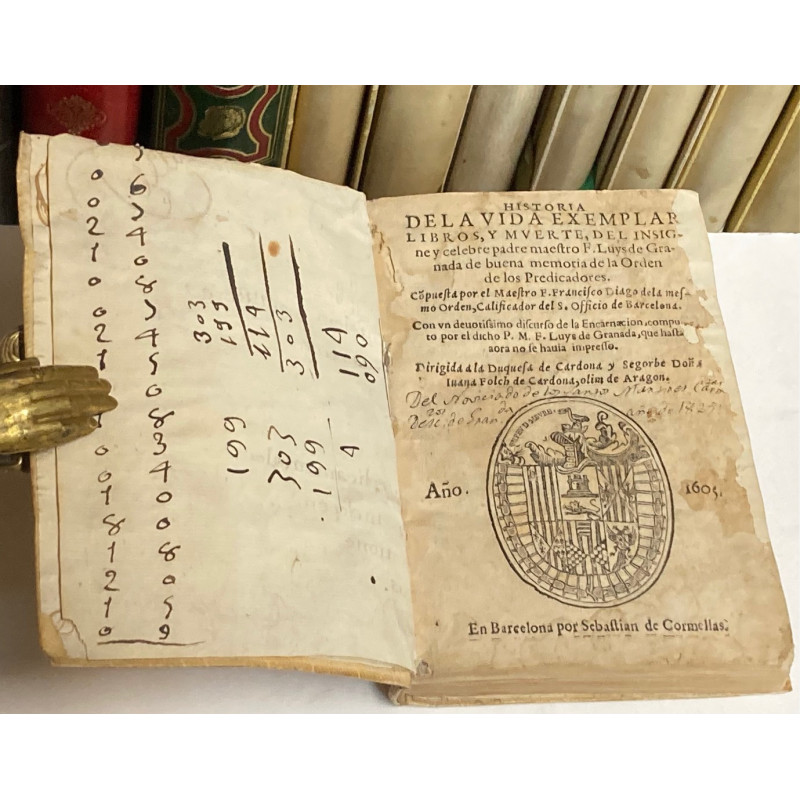 5
0 6
0 5
2 4
1 0
0 8
0 5
2 4
1 5
0
1 8
0 3
0 4
1 0
8 0
1 8
2 0
1 5
0 9
303
199
114
303
114
090
199
303
199
4
HISTORIA
DE LA VIDA EXEMPLAR
LIBROS, Y MVERTE, DEL INSIG-
ne y celebre padre maeſtro F. Luys de Gra-
nada de buena memoria de la Orden
de los Predicadores.
Cõpueſta por el Maeſtro F. Franciſco Diago dela meſ
mo Orden, Calificador del S. Officio de Barcelona.
Con vn deuotiſsimo diſcurſo de la Encarnacion, compu
to por el dicho P. M. F. Luys de Granada, que haſta
aora no ſe hauia impreſſo.
Dirigida a la Duqueſa de Cardona y Segorbe Doña
Iuana Folch de Cardona, olim de Aragon.
Del Noviciado de los
año de
Año. 1605.
En Barcelona por Sebaſtian de Cormellas.